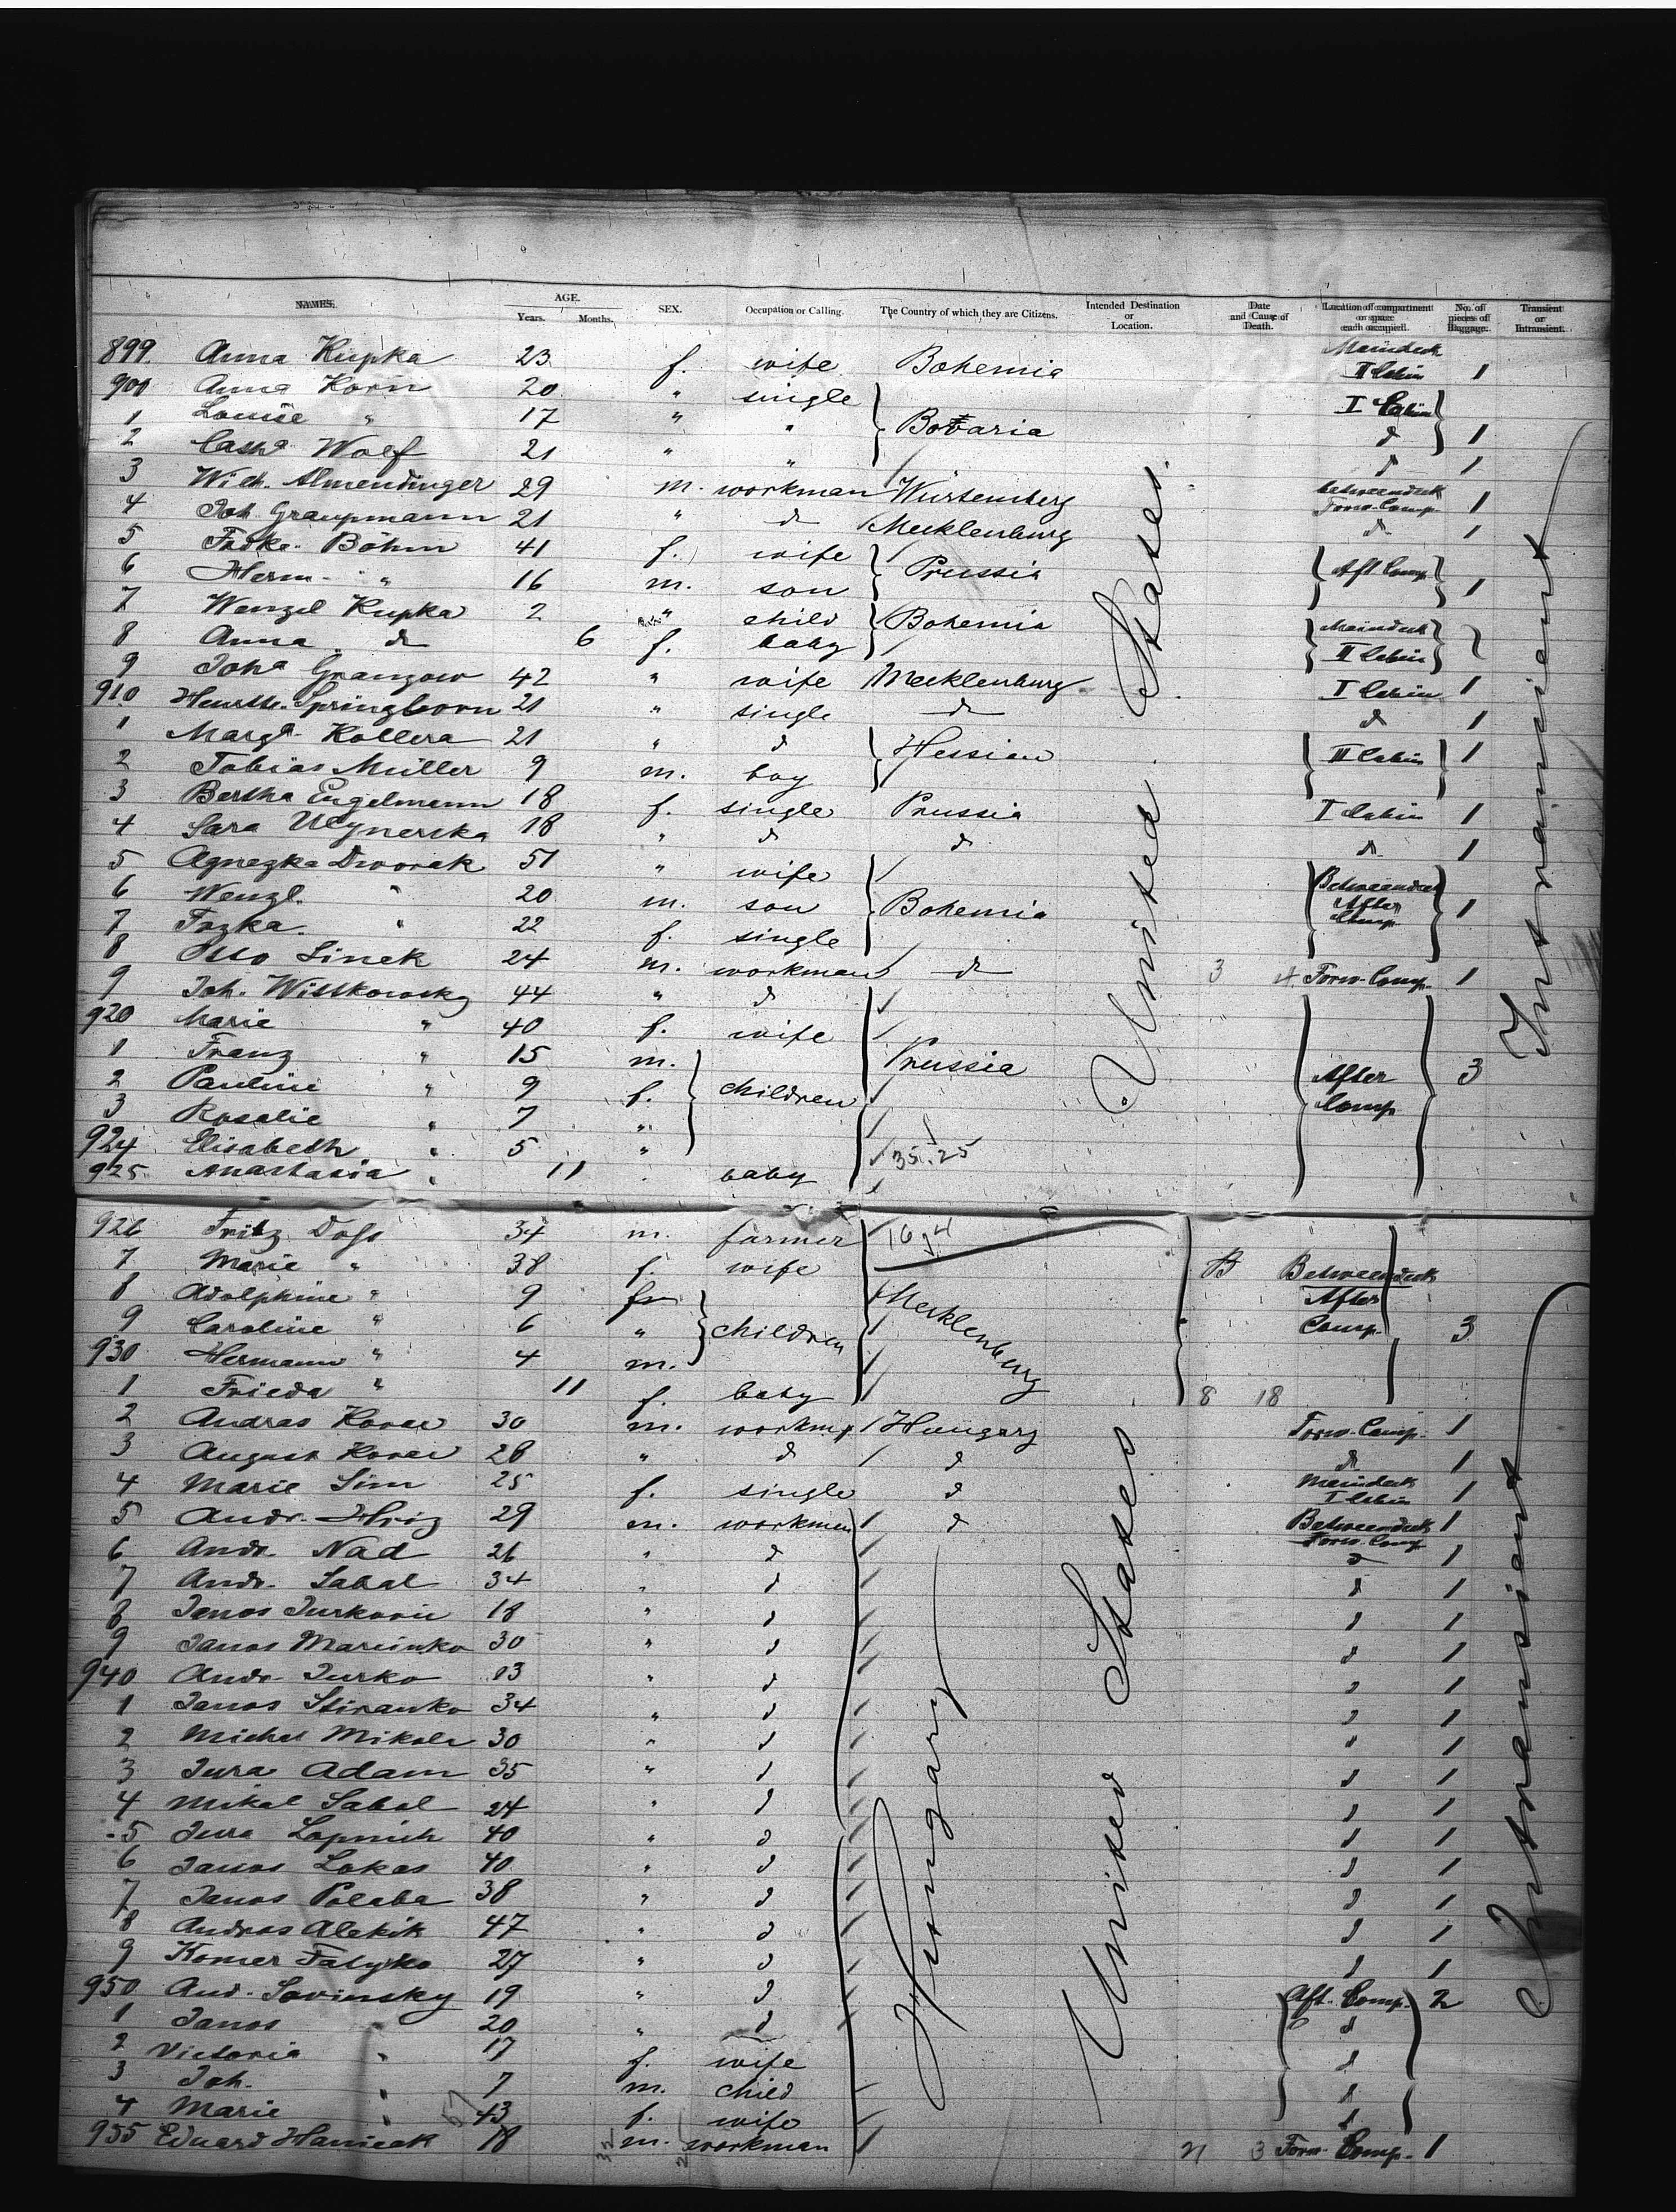 NAMES. AGE. SEX. Occupation or Calling. The Country of which they are Citizens. Intended Destination or Location. Date and Cause of Death. Location of compartment or space each occupied. No. of pieces of Baggage. Transient or Intransient.
Years. Months.
899 Anna Kupka 23 f. wife Bohemia Maindeck II Cabin 1
900 Anna Korn 20 " single I Cabin
1 Louise " 17 " " Bavaria d 1
2 Cath. Wolf 21 " " d 1
3 Wilh. Almendinger 29 m. workman Würtemberg betweendeck Forw. Comp. 1
4 Joh. Graupmann 21 " d Mecklenburg d 1
5 Böhm 41 f. wife Prussia Aft. Comp.
6 Herm. " 16 m. son 1
7 Wenzel Kupka 2 " child Bohemia Maindeck
8 Anna d 6 f. baby II Cabin
9 Joha Granzow 42 " wife Mecklenburg I Cabin 1
910 Springborn 21 " single d d 1
1 Margt. Kollera 21 " d Hessian II Cabin 1
2 Tobias Müller 9 m. boy
3 Bertha Engelmann 18 f. single Prussia I Cabin 1
4 Sara 18 " d d d 1
5 Agnezka Dworak 51 " wife Betweendeck
6 Wenzl. " 20 m. son Bohemia After Comp. 1
7 " 22 f. single
8 Otto Linek 24 m. workman d 3 4 Forw. Comp. 1
9 Joh. Wittkowsky 44 " d
920 Marie " 40 f. wife
1 Franz " 15 m. Prussia After Comp 3
2 Pauline " 9 f. children
3 Rosalie " 7 "
924 Elisabeth " 5 " 35.25
925 Anastasia " 11 baby
United States
Intransient
926 Fritz Doss 34 m. farmer
7 Marie " 38 f. wife B Betweendeck
8 Adolphine " 9 After
9 Caroline " 6 " children Mecklenburg Comp. 3
930 Hermann " 4 m.
1 Frieda " 11 f. baby 8 18
2 Andras 30 m. Hungary Forw. Comp. 1
3 August 28 " d d d 1
4 Marie Sim 25 f. single d Maindeck I Cabin 1
5 Andr. 29 m. workman d Betweendeck Forw. Comp 1
6 Andr. Nad 26 " d d 1
7 Andr. Sabal 34 " d d 1
8 Janos 18 " d d 1
9 Janos Marcinko 30 " d d 1
940 Andr. Jurko " d d 1
1 Janos Stiranko 34 " d d 1
2 Michel 30 " d " 1
3 Jura Adam 35 " d d 1
4 Mikal Sabol 24 " d d 1
5 Jura 40 " d d 1
6 Janos Lokas 40 " d d 1
7 Janos Polaba 38 " d d 1
8 Andras Alekik 47 " d d 1
9 27 " d d 1
950 And. Savinsky 19 " d Aft. Comp. 2
1 Janos " 20 " d d
2 Victoria " 17 f. wife d
3 Joh. " 7 m. child d
4 Marie " 43 f. wife d
955 Eduard 18 m. workman 3 Forw. Comp. 1
Hungary
United States
Intransient